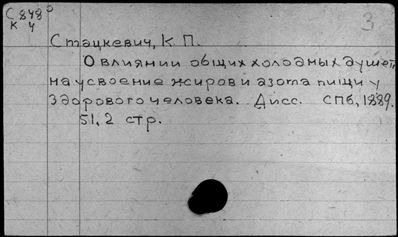 С848⁰
К 4
3
Стацкевич, К. П.
О влиянии общих холодных душей,
на усвоение жиров и азота пищи у
здорового человека. Дисс. СПб, 1889.
51, 2 стр.